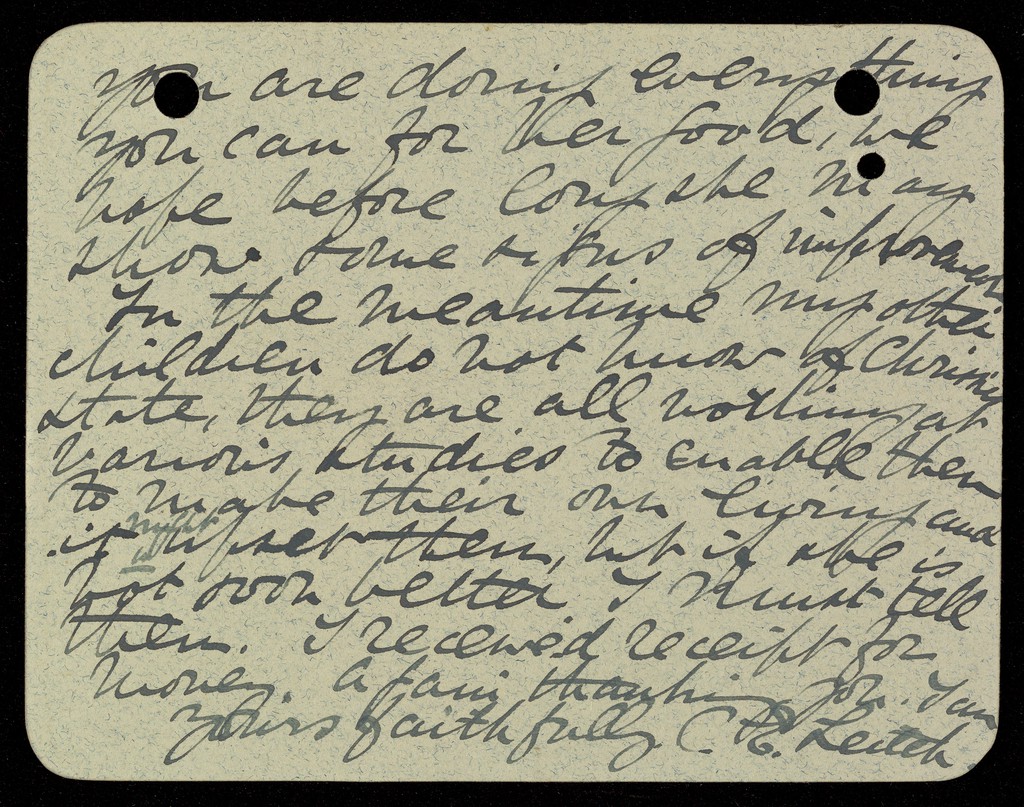 you are doing everything
you can for her good, we
hope before long she may
show some signs of improvement
In the meantime my other
children do not know of Chrissie's
state, they are all working at
various studies to enable them
to make their own living and
it might upset them, but if she is
not soon better I must tell
them. I received receipt for
money. Again thanking you. I am
yours faithfully C. E. Leitch